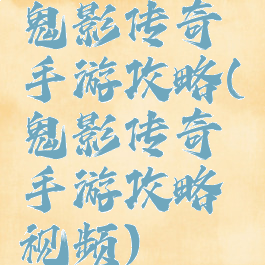 鬼影传奇
手游攻略(
鬼影传奇
手游攻略
视频)